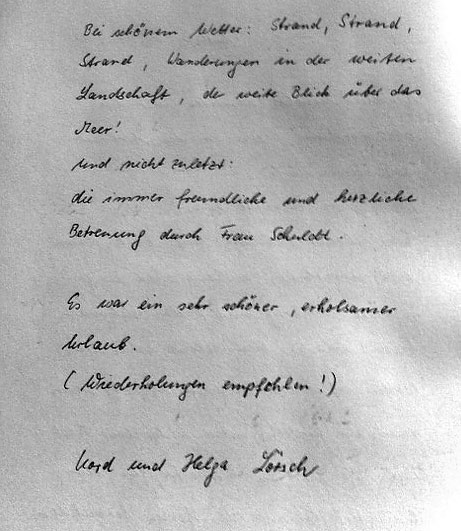 Bei schönem Wetter: Strand, Strand,
Strand, Wanderungen in der weiten
Landschaft, der weite Blick über das
Meer!
Und nicht zuletzt:
die immer freundliche und herzliche
Betreuung durch Frau Schuldt.
Es war ein sehr schöner, erholsamer
Urlaub.
(Wiederholungen empfohlen!)
und Helga Lörsch